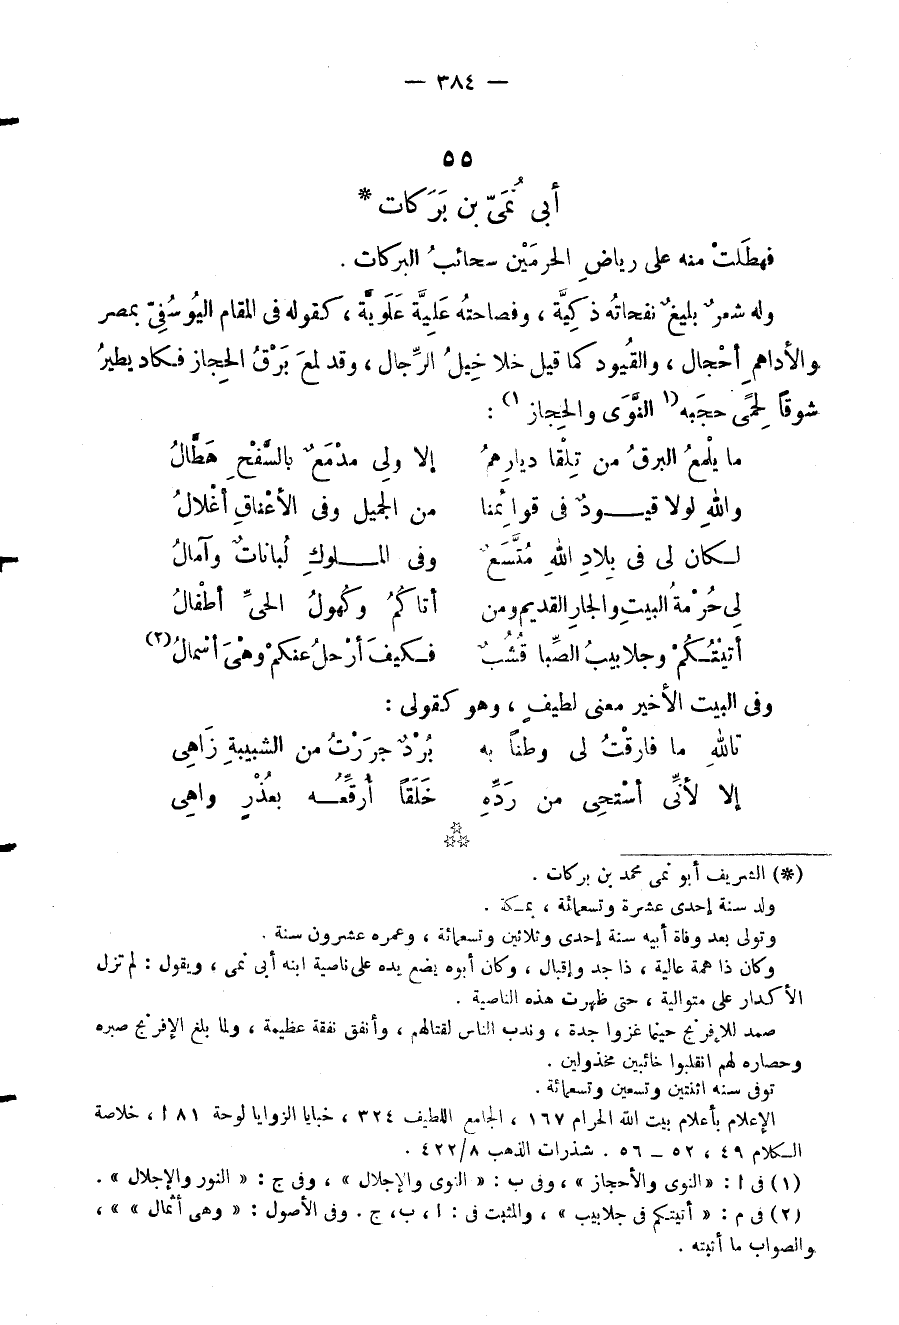 — ٣٨٤ —
٥٥
أبى نُمَىّ بن بَرَكات *
فهطَلتْ منه على رياضِ الحرمَيْن سحائبُ البركات .
وله شعرٌ بليغٌ نفحاتُه ذكيَّة ، وفصاحتُه عَلِيَّة عَلَوِيَّة ، كقوله فى المقام اليُوسُفِىّ بمصر
والأداهمِ أحْجال ، والقُيود كما قيل خلاخيلُ الرِّجال ، وقد لمعَ بَرْقُ الحِجاز فكاد يطيرُ
شوقاً لِحِمًى حجَبه (١ النَّوَى والحِجاز ١) :
ما يلْمعُ البرقُ من تِلْقا ديارِهمُ إلا ولِى مدْمَعٌ بالسَّفْحِ هَطَّالُ
واللهِ لولا قيــودٌ فى قوائمنا من الجميل وفى الأعْناقِ أغْلالُ
لكان لى فى بلادِ اللهِ مُتَّسَعٌ وفى المــلوكِ لُباناتٌ وآمالُ
لى حُرْمةُ البيت والجارِ القديم ومن أتاكُمُ وكُهولُ الحىِّ أطْفالُ
أتيْتُــكمْ وجلابيبُ الصِّبا قُشُبٌ فــكيفَ أرْحلُ عنكمْ وهْىَ أسْمالُ (٢)
وفى البيت الأخير معنى لطيف ، وهو كقولى :
تاللهِ ما فارقْتُ لى وطناً به بُرْدٌ جررْتُ من الشبيبةِ زَاهِى
إلا لأنِّى أسْتحِى من رَدِّهِ خَلَقاً أُرقِّعُــه بعُذْرٍ واهِى
(*) الشريف أبو نمى محمد بن بركات .
ولد سنة إحدى عشرة وتسعمائة ، بمكة .
وتولى بعد وفاة أبيه سنة إحدى وثلاثين وتسعمائة ، وعمره عشرون سنة .
وكان ذا همة عالية ، ذا جد وإقبال ، وكان أبوه يضع يده على ناصية ابنه أبى نمى ، ويقول : لم تزل
الأكدار على متوالية ، حتى ظهرت هذه الناصية .
صمد للإفرنج حينما غزوا جدة ، وندب الناس لقتالهم ، وأنفق نفقة عظيمة ، ولما بلغ الإفرنج صبره
وحصاره لهم انقلبوا خائبين مخذولين .
توفى سنه اثنتين وتسعين وتسعمائة .
الإعلام بأعلام بيت الله الحرام ١٦٧ ، الجامع اللطيف ٣٢٤ ، خبايا الزوايا لوحة ٨١ ا ، خلاصة
الكلام ٤٩ ، ٥٢ – ٥٦ . شذرات الذهب ٤٢٢/٨ .
(١) فى ا : « النوى والأحجاز » ، وفى ب : « النوى والإجلال » ، وفى ج : « النور والإجلال » .
(٢) فى م : « أتيتكم فى جلابيب » ، والمثبت فى : ا ، ب ، ج . وفى الأصول : « وهى أثمال » » ،
والصواب ما أثبته .